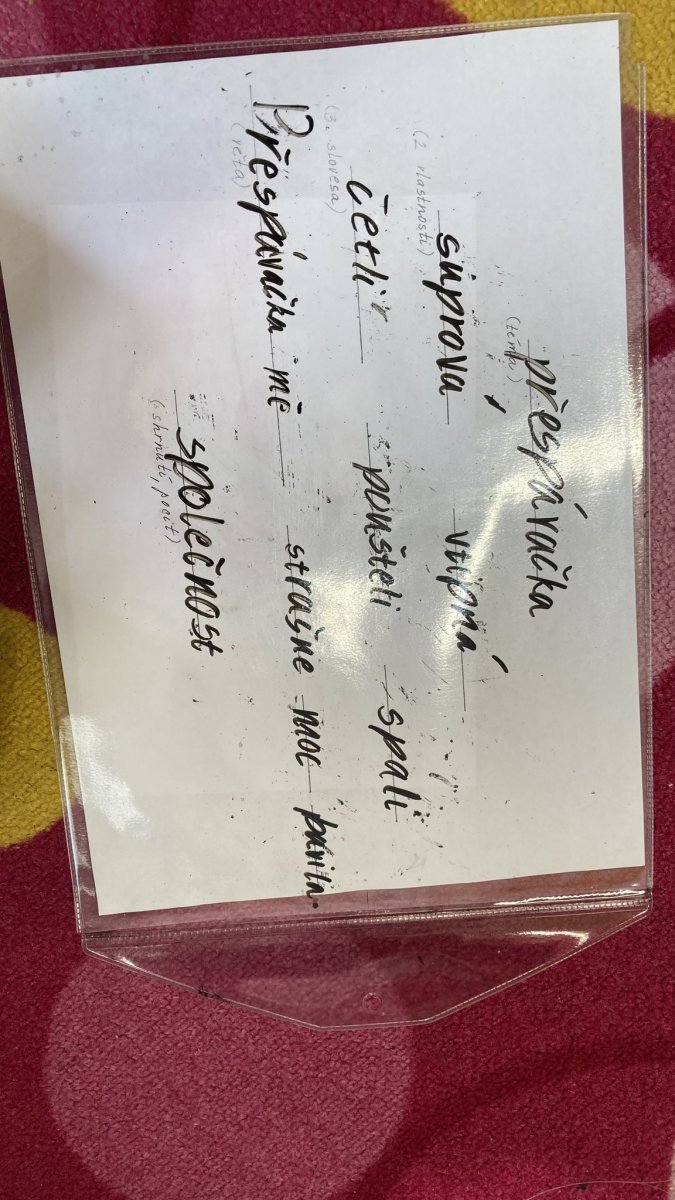 přespávačka
(téma)
súprová vtipná
(2 vlastnosti)
četli pouštěli spali
(3. slovesa)
Přespávačka mě strašne moc bavila.
(věta)
společnost
(shrnutí, pocit)